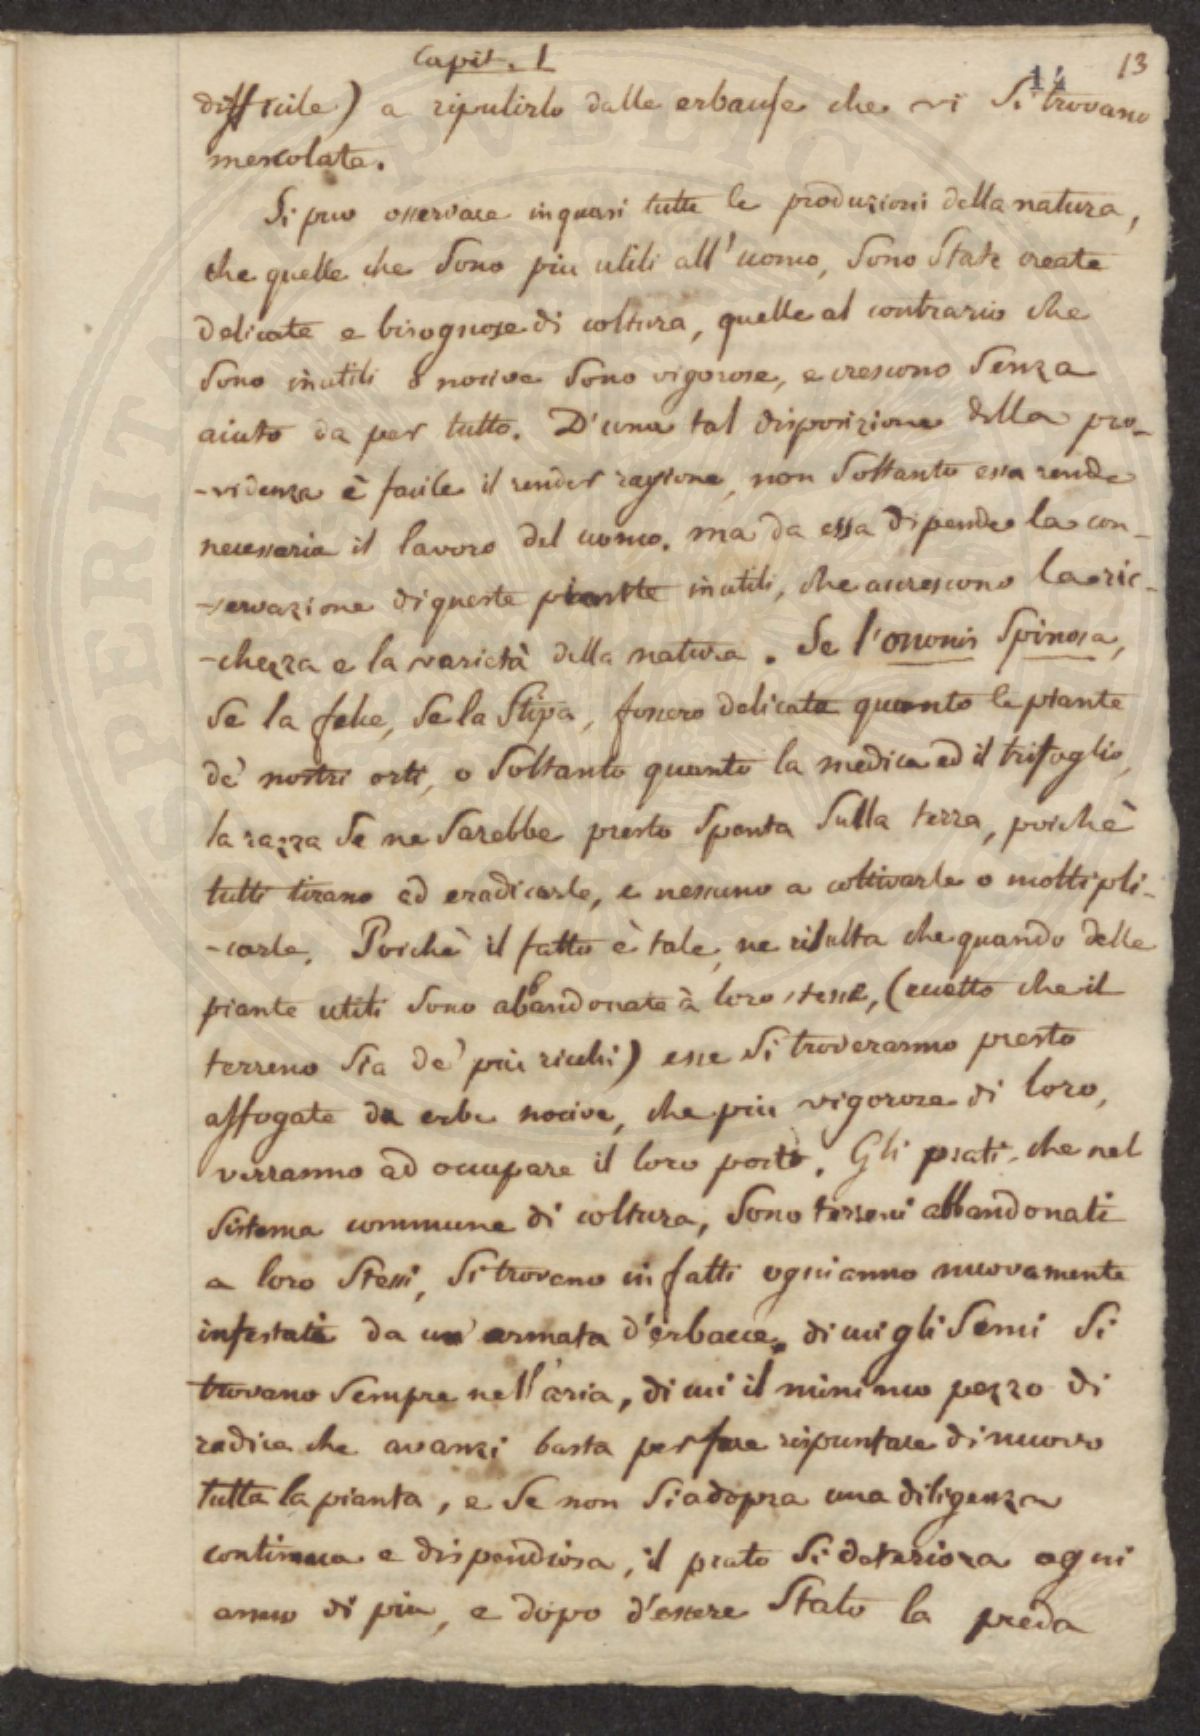 Capit. I
14 13
difficile) a ripulirlo dalle erbause che vi si trovano
mescolate.
Si può osservare in quasi tutte le produzioni della natura,
che quelle che sono piu utili all'uomo, sono state create
delicate e bisognose di coltura, quelle al contrario che
sono inutili o nocive sono vigorose, e crescono senza
aiuto da per tutto. D'una tal disposizione della pro-
-videnza è facile il render ragione, non soltanto essa rende
necessaria il lavoro del uomo. ma da essa dipende la con-
-servazione di queste piante inutili, che accrescono la ric-
-chezza e la varietà della natura. Se l'ononis spinosa,
se la felce, se la stipa, fossero delicate quanto le piante
de' nostri orti, o soltanto quanto la medica ed il trifoglio,
la razza se ne sarebbe presto spenta sulla terra, poichè
tutti tirano ad eradicarle, e nessuno a coltivarle o moltipli-
-carle. Poichè il fatto è tale, ne risulta che quando delle
piante utili sono abbandonate à loro stesse, (eccetto che il
terreno sia de' piu ricchi) esse si troveranno presto
affogate da erbe nocive, che piu vigorose di loro,
verranno ad occupare il loro posto. Gli prati, che nel
sistema commune di coltura, sono terreni abbandonati
a loro stessi, si trovano in fatti ogni anno nuovamente
infestati da un' armata d'erbacce, di cui gli semi si
trovano sempre nell'aria, di cui il minimo pezzo di
radica che avanzi basta per fare rispuntare di nuovo
tutta la pianta, e se non si adopra una diligenza
continua e dispendiosa, il prato si deteriora ogni
anno di piu, e dopo d'essere stato la preda